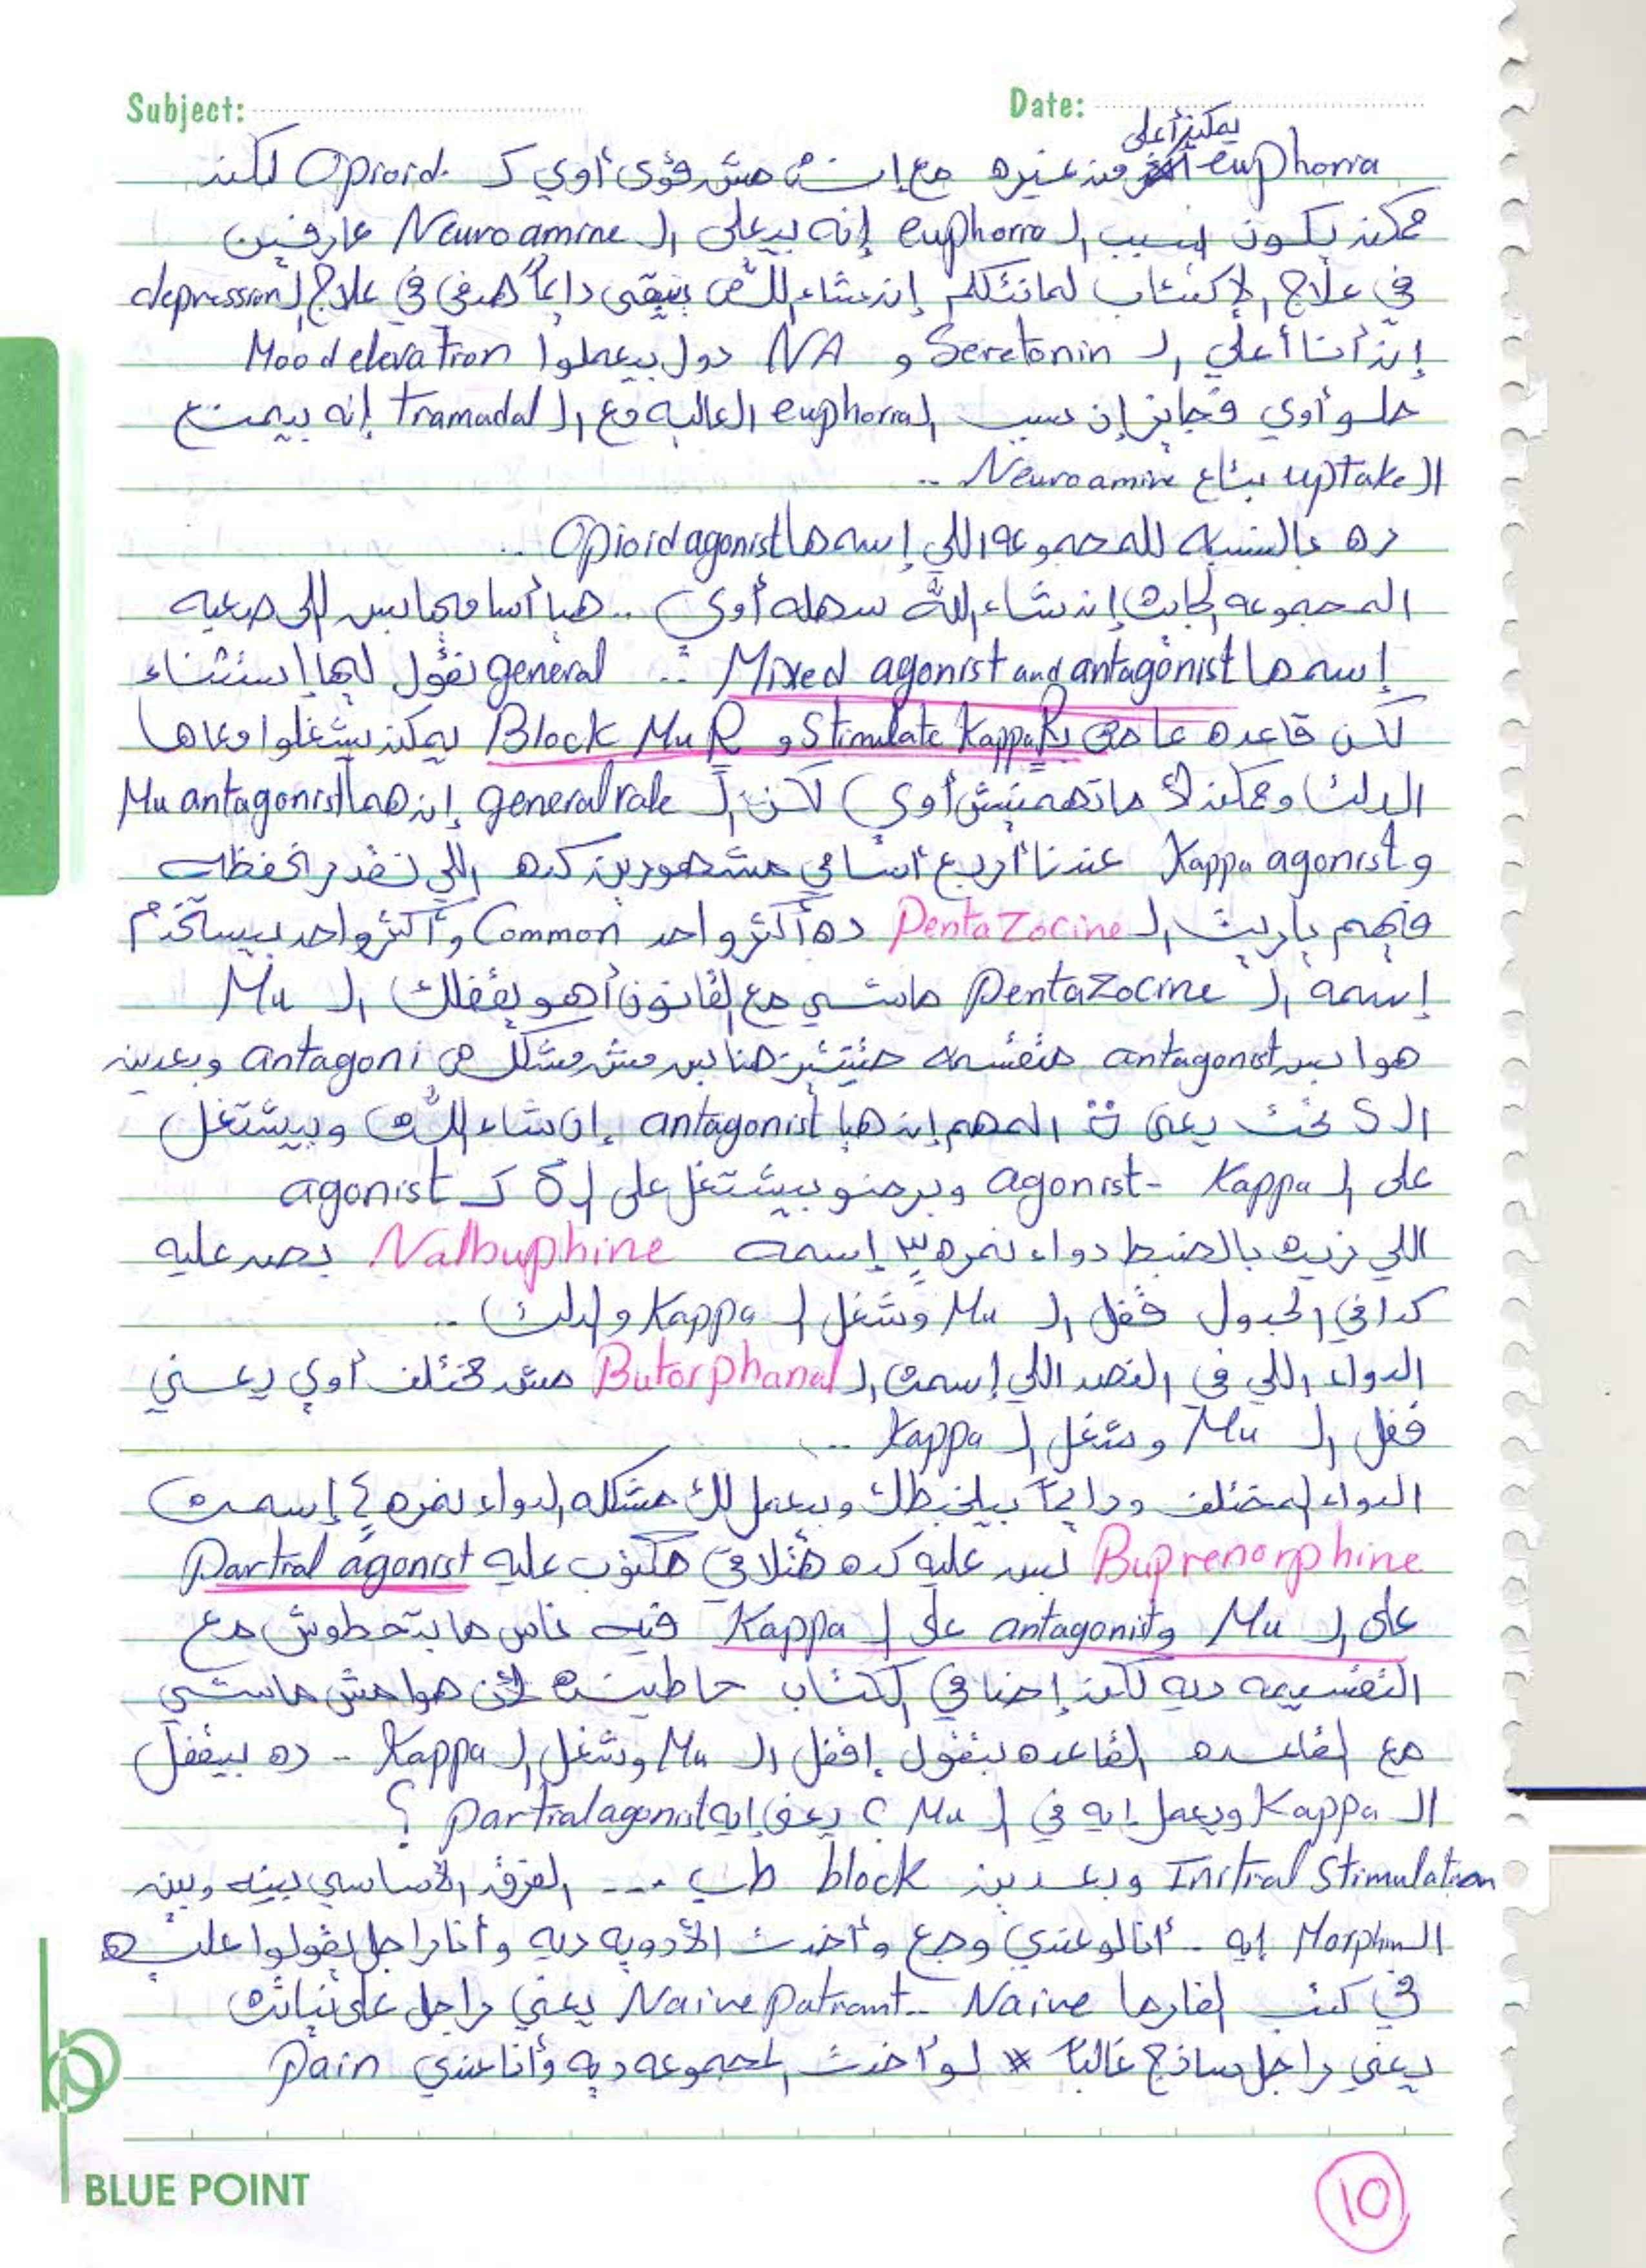 Subject: Date:
يمكن أعلى
euphoria من غيره مع إنه مش قوي أوي كـ Opioid. لكن
ممكن يكون سبب الـ euphoria إنه بيعلي الـ Neuroamine عارفين
في علاج الإكتئاب لما نتكلم إن شاء الله بيبقى دايماً هدفي في علاج الـ depression
إن أنا أعلي الـ Seretonin و NA دول بيعملوا Mood elevation
حلو أوي فجايز إن سبب الـ euphoria العاليه مع الـ Tramadal إنه بيمنع
الـ uptake بتاع Neuroamine ..
ده بالنسبه للمجموعه اللي إسمها Opioid agonist ..
المجموعه الجايه إن شاء الله سهله أوي .. هيا أساميها بس اللي صعبه
إسمها Mixed agonist and antagonist .. general نقول ليها إستثناء
لكن قاعده عامه Stimulate Kappa R و Block Mu R يمكن يشغلوا معاها
الدلتا وممكن لأ ماتهمنيش أوي لكن الـ general rale إن هما Mu antagonist
و Kappa agonist عندنا أربع أسامي مشهورين كده اللي نقدر نحفظه
فيهم ياريت الـ PentaZocine ده أكتر واحد Common وأكتر واحد بيستخدم
إسمه الـ PentaZocine ماشي مع القانون أهو يقفلك الـ Mu
هوا بس antagonist هنا بس مش مشكله antagoni وبعدين
الـ S تحت يعني المهم إن هيا antagonist إن شاء الله وبيشتغل
على الـ Kappa - agonist وبرضو بيشتغل على الـ δ كـ agonist
اللي زيه بالضبط دواء نمره ٣ إسمه Nalbuphine بصر عليه
كدا في الجدول قفل الـ Mu وشغل الـ Kappa والدلتا ..
الدواء اللي في النص اللي إسمه الـ Butorphanal مش مختلف أوي يعني
قفل الـ Mu وشغل الـ Kappa ..
الدواء المختلف ودايماً بيلخبطك وبيعمل لك مشكله الدواء نمره ٤ إسمه
Buprenorphine بص عليه كده هتلاقي مكتوب عليه Partial agonist
على الـ Mu و antagonist على الـ Kappa فيه ناس مابتحطوش مع
التقسيمه ديه لكن إحنا في الكتاب حاطينه لأن هوا مش ماشي
مع القاعده القاعده بتقول إقفل الـ Mu وشغل الـ Kappa - ده بيقفل
الـ Kappa ويعمل إيه في الـ Mu ؟ يعني إيه partial agonist ؟
Initial Stimulation وبعدين block طب ... الفرق الأساسي بينه وبين
الـ Morphin إيه .. أنا لو عندي وجع وأخدت الأدويه ديه وأنا راجل بيقولوا عليه
في كتب الفارما Naive .. Naive Patiant يعني راجل على نياته
يعني راجل ساذج غالباً * لو أخدت المجموعه ديه وأنا عندي Pain
bp
BLUE POINT
10